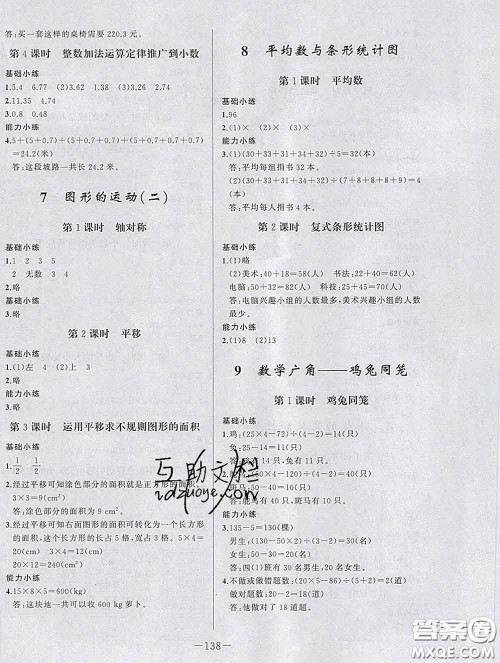 答:买一套这样的桌椅需要 220.3 元。
第 4 课时　整数加法运算定律推广到小数
基础小练
1.5.4　6.77　3.62　3.62　(1.38　0.62)
2.11.35　4.74
3.18　4.74
能力小练
4.5+(5+0.7)+(5+0.7+0.7)+(5+0.7+0.7+0.7)
=24.2(米)
答:这段坡路一共长 24.2 米。
7　图形的运动(二)
第 1 课时　轴对称
基础小练
1.1　2　3　5
2　无数　3　4
2.略
3.略
第 2 课时　平移
基础小练
1.(1)左　4　(2)上　3
2.略
能力小练
3.略
第 3 课时　运用平移求不规则图形的面积
基础小练
1.1/2　1/2
2.经过平移可知涂色部分的面积就是正方形的面积。
3×3=9(cm²)
答:涂色部分的面积为 9 cm²。
3.经过平移可知右面图形的面积可转化为一个长方形
的面积,这个长方形的长占 5 格,宽占 3 格。
5×4=20(cm)　3×4=12(cm)
20×12=240(cm²)
能力小练
4.15×8×5=600(kg)
答:这块地一共可以收 600 kg 萝卜。
8　平均数与条形统计图
第 1 课时　平均数
基础小练
1.96
2.(1)×　(2)×　(3)×
能力小练
3.(1)(30+33+31+34+32)÷5=32(本)
答:平均每组捐书 32 本。
(2)(30+33+31+34+32)÷(8×5)=4(本)
答:平均每人捐书 4 本。
第 2 课时　复式条形统计图
基础小练
1.(1)略
(2)美术:40+18=58(人)　书法:22+40=62(人)
电脑:50+32=82(人)　科技:25+50=75(人)
答:电脑兴趣小组的人数最多,美术兴趣小组的人数
最少。
能力小练
2.(1)8　(2)13
9　数学广角——鸡兔同笼
第 1 课时　鸡兔同笼
基础小练
1.鸡:(25×4-72)÷(4-2)=14(只)
兔:25-14=11(只)
答:鸡有 14 只,兔有 11 只。
答:鸵鸟有 5 只,斑马有 10 只。
能力小练
3.135-5=130(棵)
男生:(130-50×2)÷(3-2)=30(名)
女生:50-30=20(名)
答:四(1)班有 30 名男生,20 名女生。
4.不做或做错题数:(20×5-86)÷(5+2)=2(道)
做对题数:20-2=18(道)
答:他做对了 18 道。
互助文档
idzuoye.com
138
答案圈
MXQE.COM